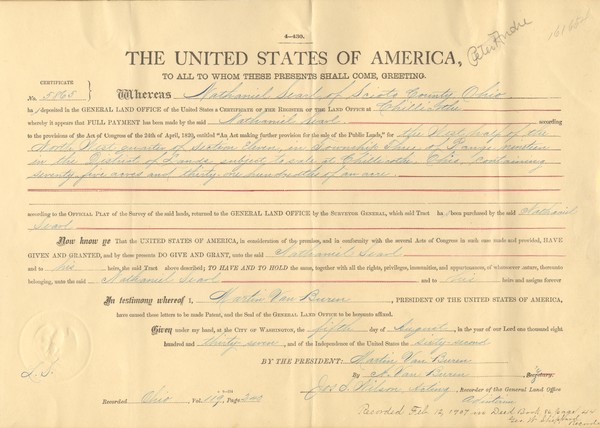 4-430.
Peter Andre
THE UNITED STATES OF AMERICA,
TO ALL TO WHOM THESE PRESENTS SHALL COME, GREETING:
CERTIFICATE
No. 5865
Whereas Nathaniel Searl of Scioto County Ohio
has deposited in the GENERAL LAND OFFICE of the United States a CERTIFICATE OF THE REGISTER OF THE LAND OFFICE at Chillicothe
whereby it appears that FULL PAYMENT has been made by the said Nathaniel Searl according
to the provisions of the Act of Congress of the 24th of April, 1820, entitled "An Act making further provision for the sale of the Public Lands," for the West half of the
North West quarter of Section Eleven, in Township Three of Range nineteen
in the District of Lands subject to sale at Chillicothe, Ohio, containing
seventy five acres and thirty one hundredths of an acre.
according to the OFFICIAL PLAT of the Survey of the said lands, returned to the GENERAL LAND OFFICE by the SURVEYOR GENERAL, which said Tract has been purchased by the said Nathaniel
Searl
Now know ye That the UNITED STATES OF AMERICA, in consideration of the premises, and in conformity with the several Acts of Congress in such case made and provided, HAVE
GIVEN AND GRANTED, and by these presents DO GIVE AND GRANT, unto the said Nathaniel Searl
and to his heirs, the said Tract above described; TO HAVE AND TO HOLD the same, together with all the rights, privileges, immunities, and appurtenances, of whatsoever nature, thereunto
belonging, unto the said Nathaniel Searl and to his heirs and assigns forever
In testimony whereof I, Martin Van Buren, PRESIDENT OF THE UNITED STATES OF AMERICA,
have caused these letters to be made Patent, and the Seal of the GENERAL LAND OFFICE to be hereunto affixed.
Given under my hand, at the CITY OF WASHINGTON, the fifth day of August, in the year of our Lord one thousand eight
hundred and thirty seven, and of the Independence of the United States the sixty second
BY THE PRESIDENT: Martin Van Buren
L.S.
By A. Van Buren Secretary.
Jos. S. Wilson, Acting Recorder of the General Land Office
ad interim
Recorded Ohio, Vol. 119, Page
Recorded Feb 12, 1909 in Deed Book